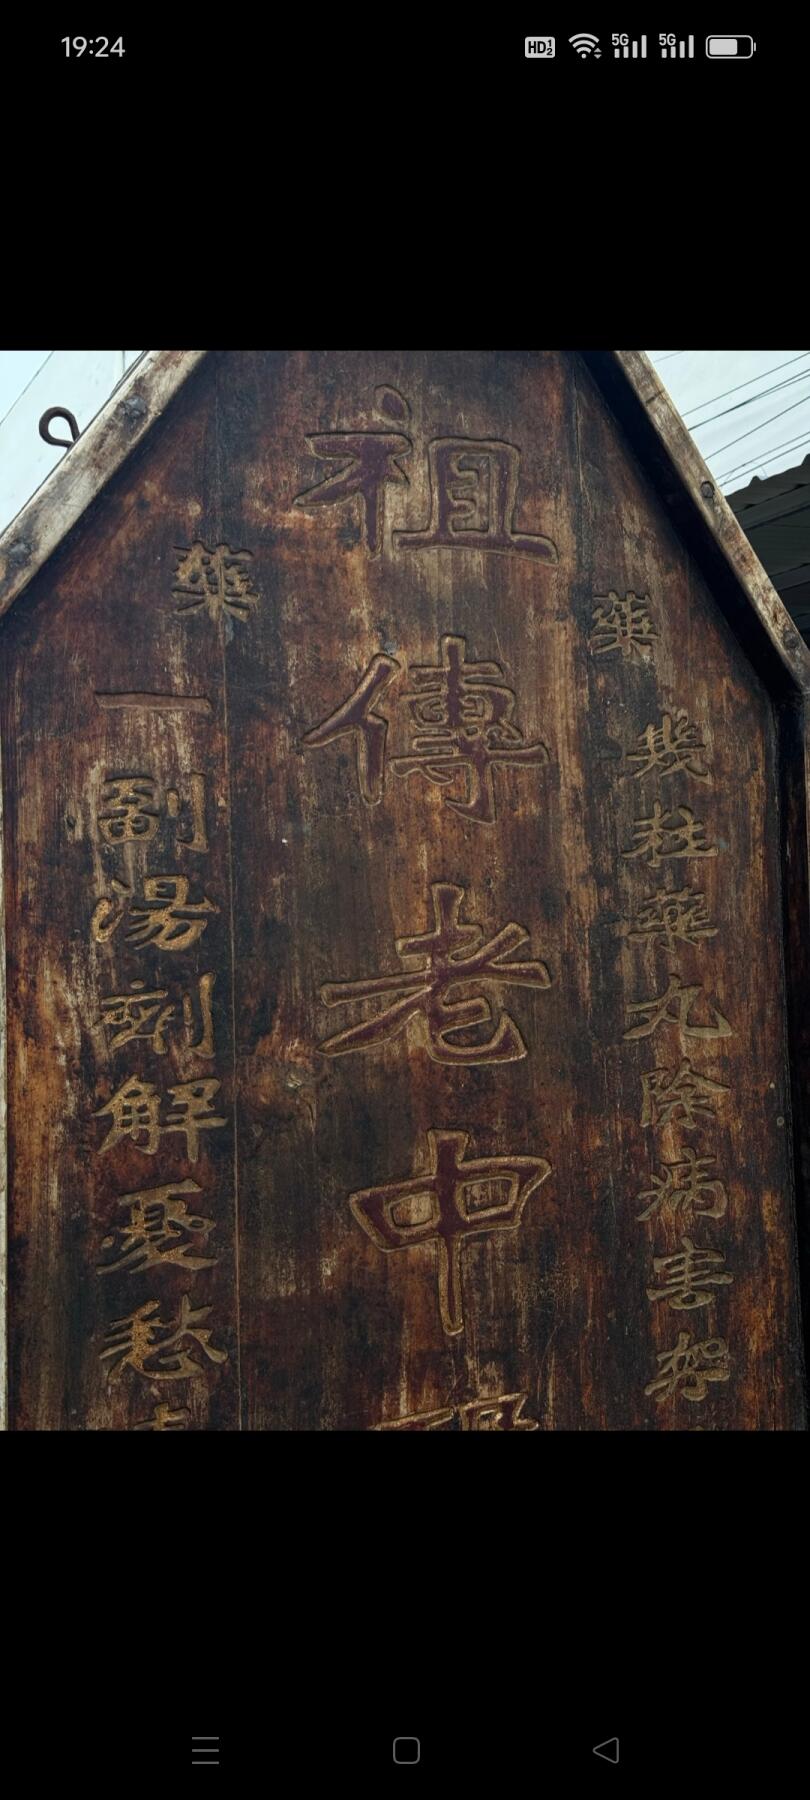 19:24
HD 1 2 5G 5G
祖傳老中
藥
幾粒藥丸除病害
藥
一副湯劑解憂愁